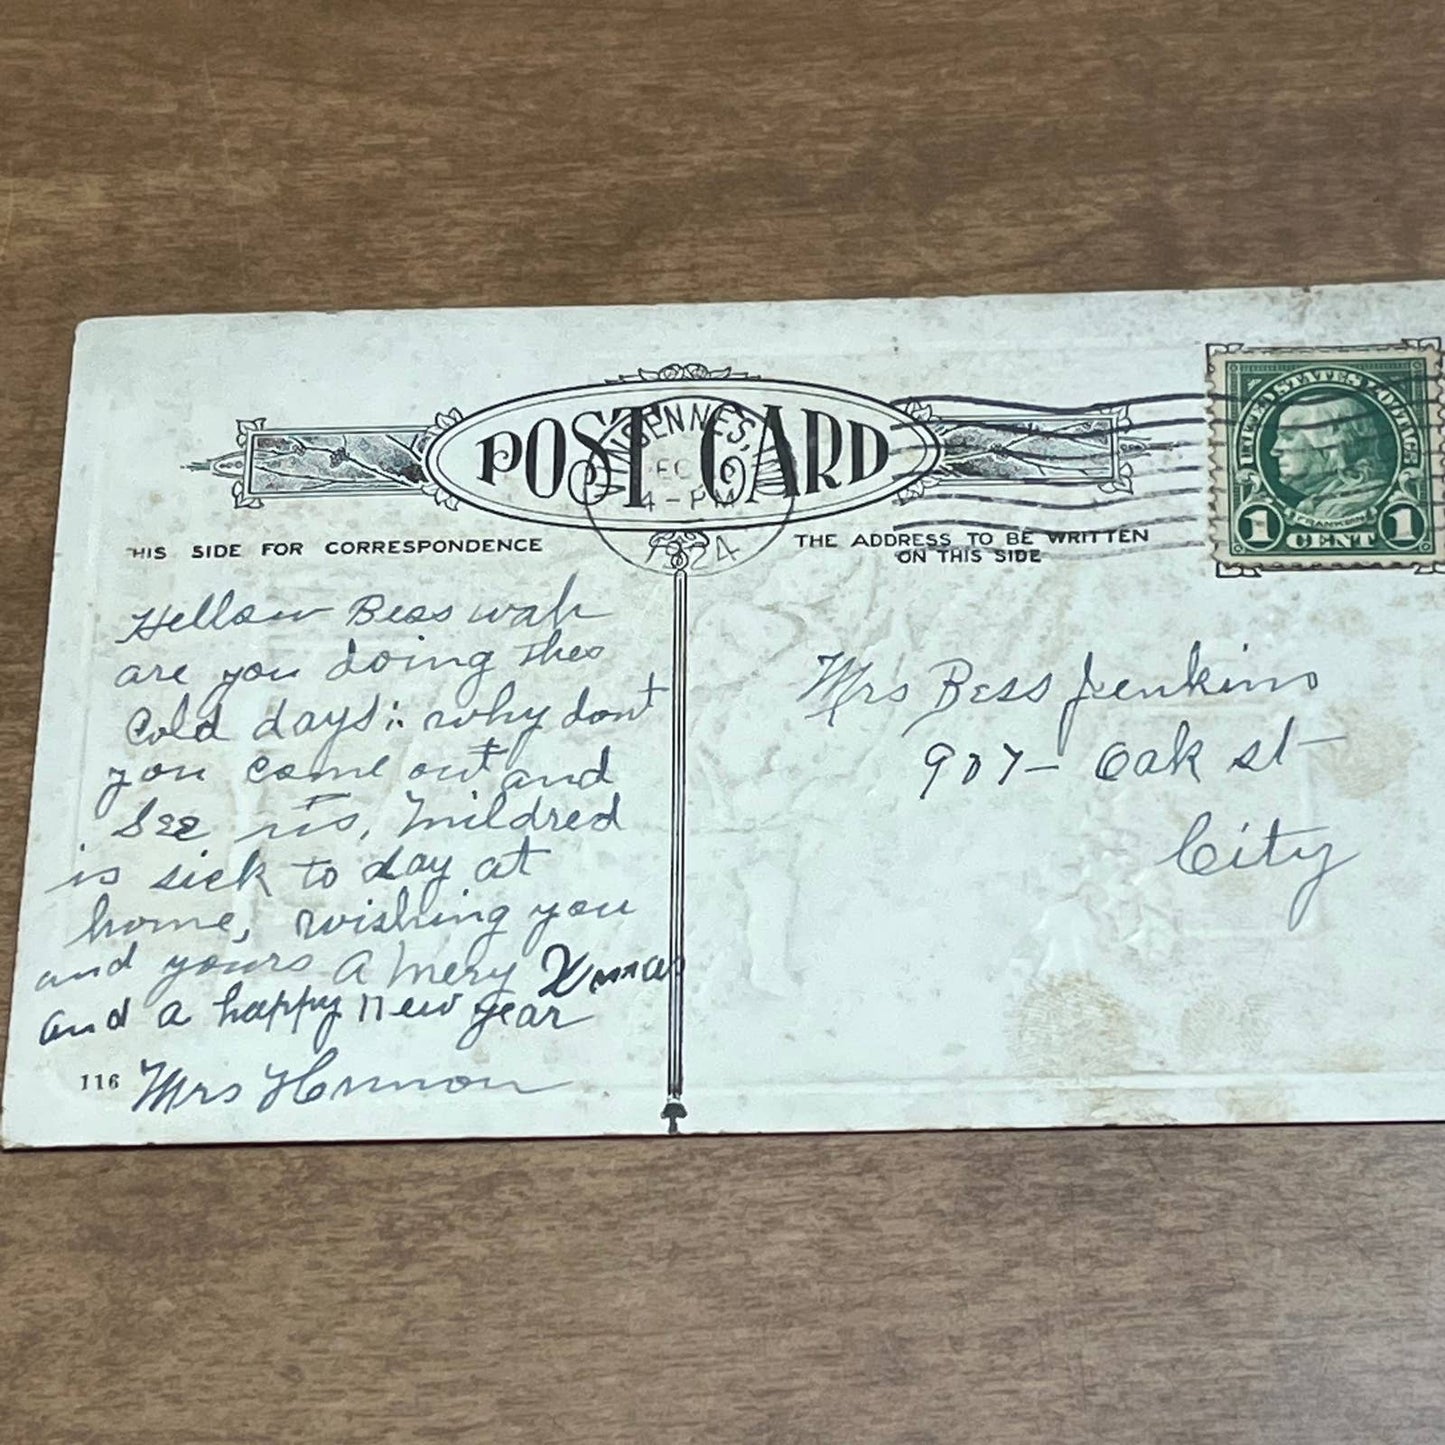 POST CARD
VINCENNES,
EC
4-PM
1924
UNITED STATES POSTAGE
FRANKLIN
1 CENT 1
HIS SIDE FOR CORRESPONDENCE
THE ADDRESS TO BE WRITTEN
ON THIS SIDE
Hellow Bess wah
are you doing thes
Cold days: why don't
you come out and
See us, Mildred
is sick to day at
home, wishing you
and yours A Mery Xmas
and a happy new year
116 Mrs
Mrs Bess Jenkins
907- Oak st-
City